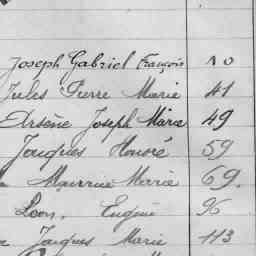 Joseph Gabriel François 10
Jules Pierre Marie 41
Arsène Joseph Marie 49
Jacques Honoré 59
Maurice Marie 69.
Léon, Eugène 96
Jacques Marie 113